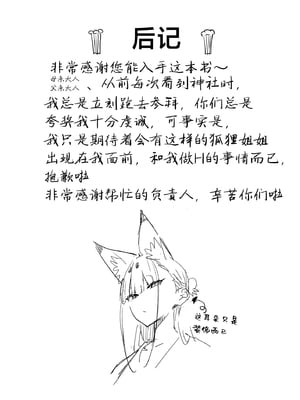 后记
非常感谢您能入手这本书~
母亲大人
父亲大人、从前每次看到神社时,
我总是立刻跑去参拜，你们总是
夸奖我十分虔诚，可事实是,
我只是期待着会有这样的狐狸姐姐
出现在我面前，和我做H的事情而已,
抱歉啦
非常感谢帮忙的负责人，辛苦你们啦
这耳朵只是
装饰而已